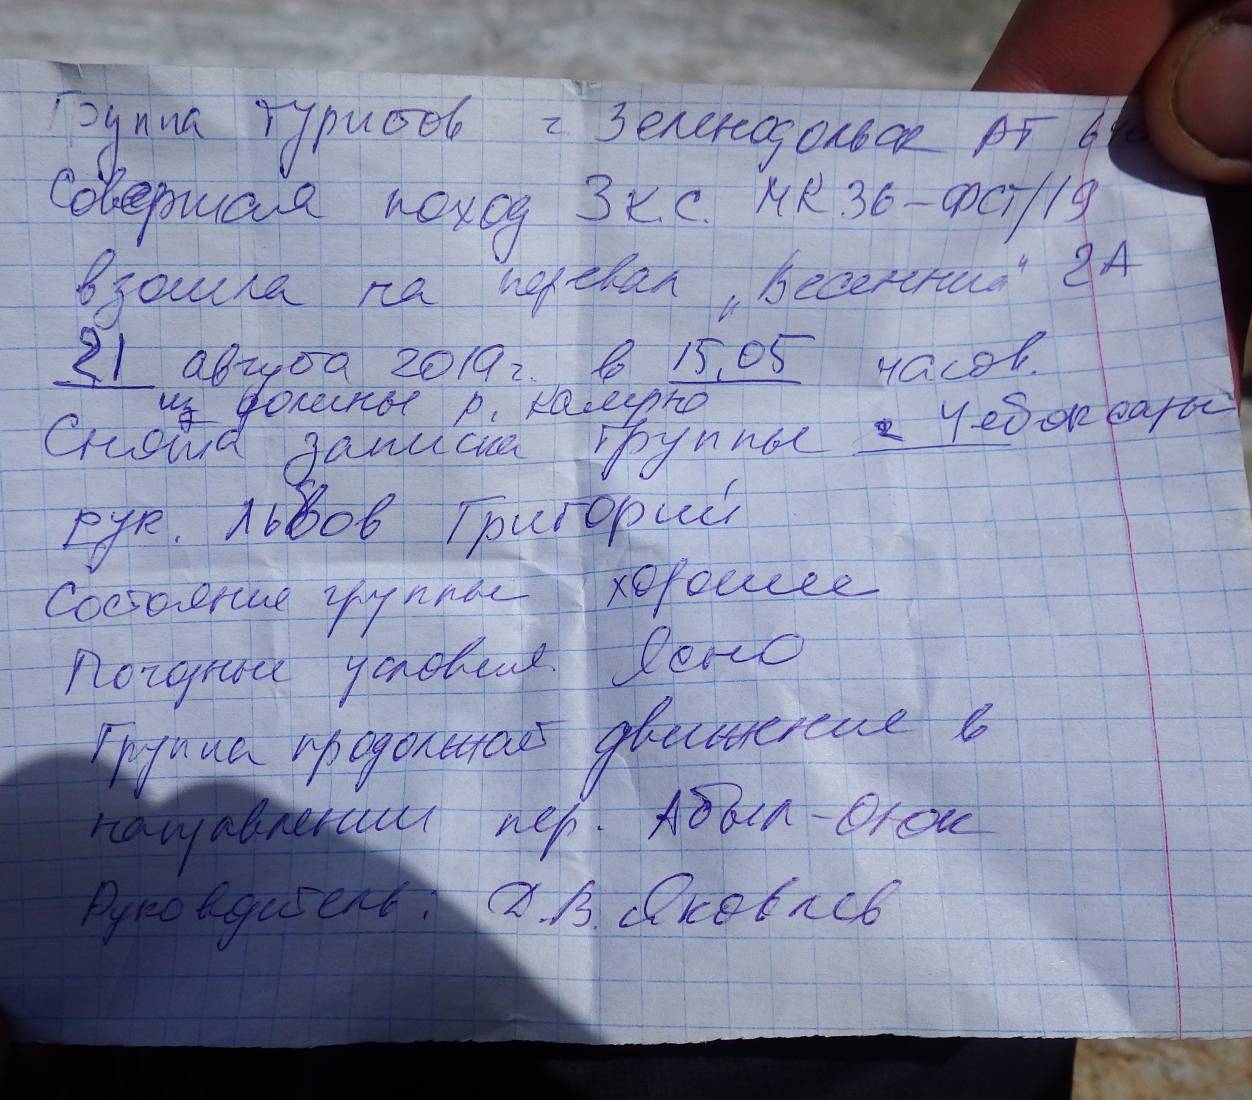 Группа туристов г. Зеленодольск РТ
Совершая поход 3 к.с. МК 36-ФСТ/19
взошла на перевал „Весенний" 2А
21 августа 2019 г. в 15,05 часов.
из долины р.
Снята записка группы г Чебоксары
рук. Львов Григорий
Состояние группы хорошее
Погодные условия. Ясно
Группа продолжает движение в
направлении пер. Абыл-Оюк
Руководитель: Д.В. Яковлев